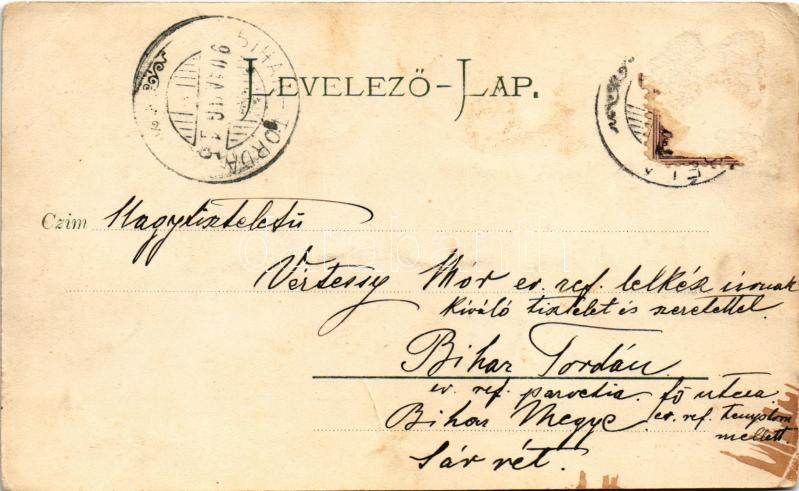 LEVELEZŐ-LAP.
BIHAR-TORDA
Czim Nagytiszteletű
darabanth
Vértessy Mór ev. ref. lelkész úrnak
kiváló tisztelet és szeretettel.
Bihar Tordán
ev. ref. parochia. fő utcza
Bihar Megye ev. ref. templom
mellett.
Sár rét.